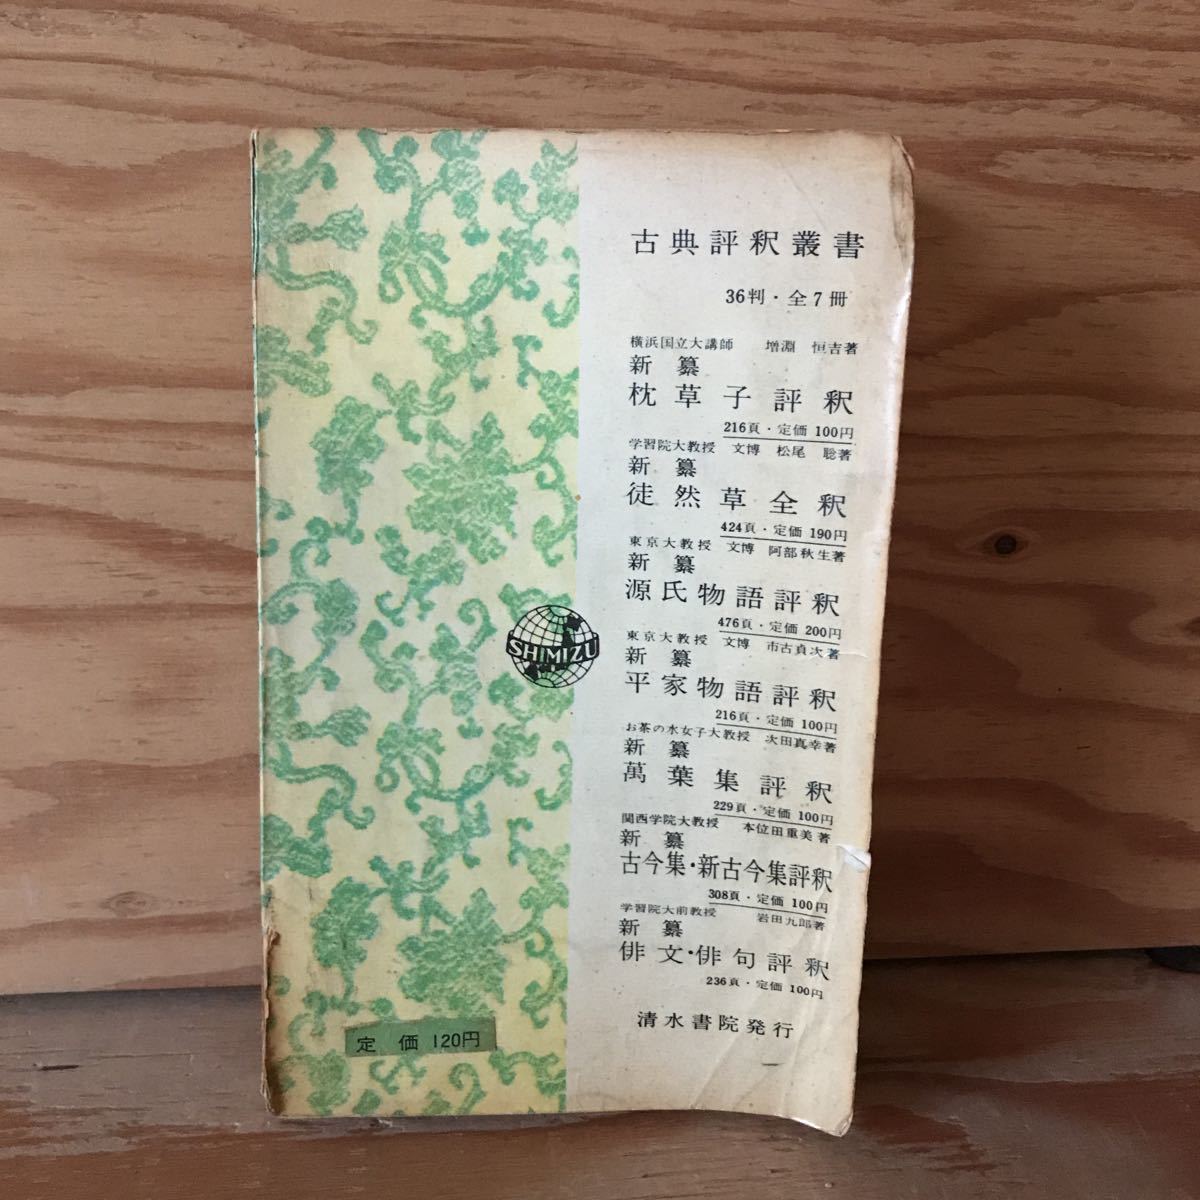 古典評釈叢書
36判・全7冊
横浜国立大講師 増淵 恒吉著
新纂
枕草子評釈
216頁・定価 100円
学習院大教授 文博 松尾 聡著
新纂
徒然草全釈
424頁・定価 190円
東京大教授 文博 阿部秋生著
新纂
源氏物語評釈
476頁・定価 200円
東京大教授 文博 市古貞次著
新纂
平家物語評釈
216頁・定価 100円
お茶の水女子大教授 次田真幸著
新纂
萬葉集評釈
229頁・定価 100円
関西学院大教授 本位田重美著
新纂
古今集・新古今集評釈
308頁・定価 100円
学習院大前教授 岩田九郎著
新纂
俳文・俳句評釈
236頁・定価 100円
清水書院発行
SHIMIZU
定価 120円